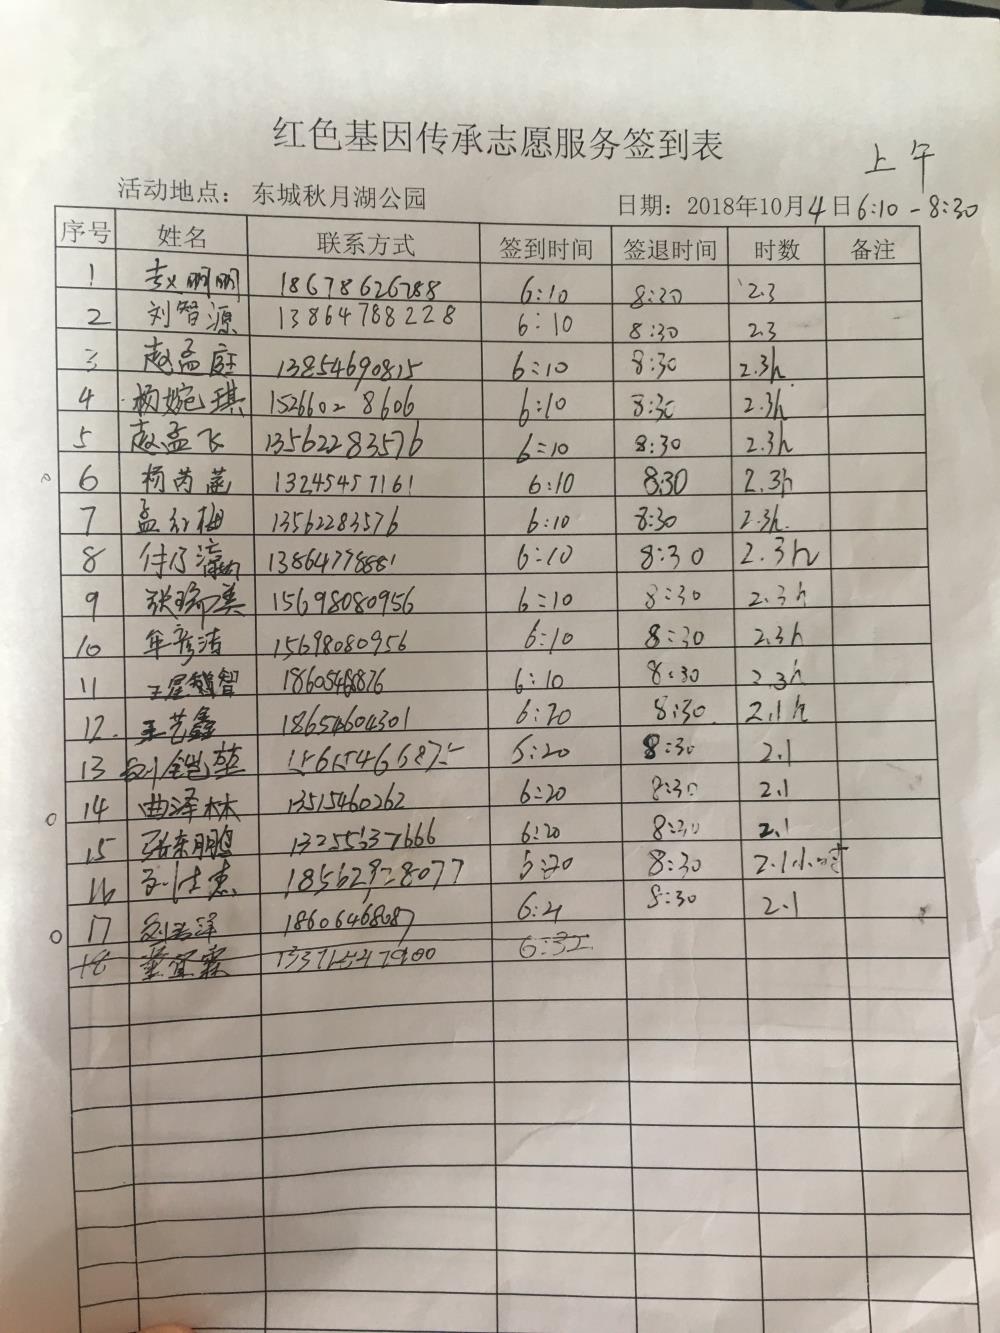 红色基因传承志愿服务签到表
上午
活动地点： 东城秋月湖公园 日期：2018年10月4日6:10-8:30
序号 姓名 联系方式 签到时间 签退时间 时数 备注
1 赵明明 18678626788 6:10 8:30 2.3
2 刘智源 13864788228 6:10 8:30 2.3
3 赵孟庭 13854690815 6:10 8:30 2.3h
4 杨婉琪 15266028606 6:10 8:30 2.3h
5 赵孟飞 13562283576 6:10 8:30 2.3h
6 杨芮菡 13245457161 6:10 8:30 2.3h
7 孟红梅 13562283576 6:10 8:30 2.3h.
8 付乃 13864778881 6:10 8:30 2.3h
9 张瑜美 15698080956 6:10 8:30 2.3h
10 年彦洁 15698080956 6:10 8:30 2.3h
11 王星智 6:10 8:30 2.3h
12. 王艺鑫 18654604301 6:20 8:30 2.1h
13 刘铠堃 5:20 8:30 2.1
14 曲泽林 13515460262 6:20 8:30 2.1
15 张东鹏 13255637666 6:20 8:30 2.1
16 8:30 2.1小时
17 18606468087 6:21 8:30 2.1
18 董宜霖 6:32